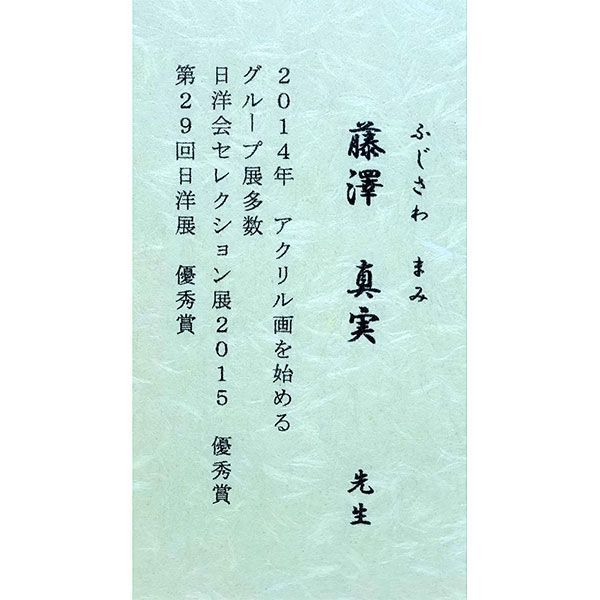 ふじさわ まみ
藤澤 真実 先生
2014年 アクリル画を始める
グループ展多数
日洋会セレクション展2015 優秀賞
第29回日洋展 優秀賞